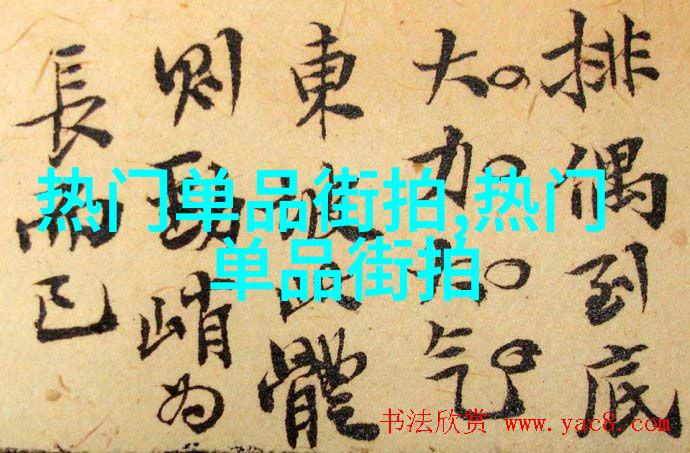 排偶到底
大加气
東體
則勁峭为
長而已
热门单品街拍,热门
单品街拍
书法欣赏 www.yac8.com